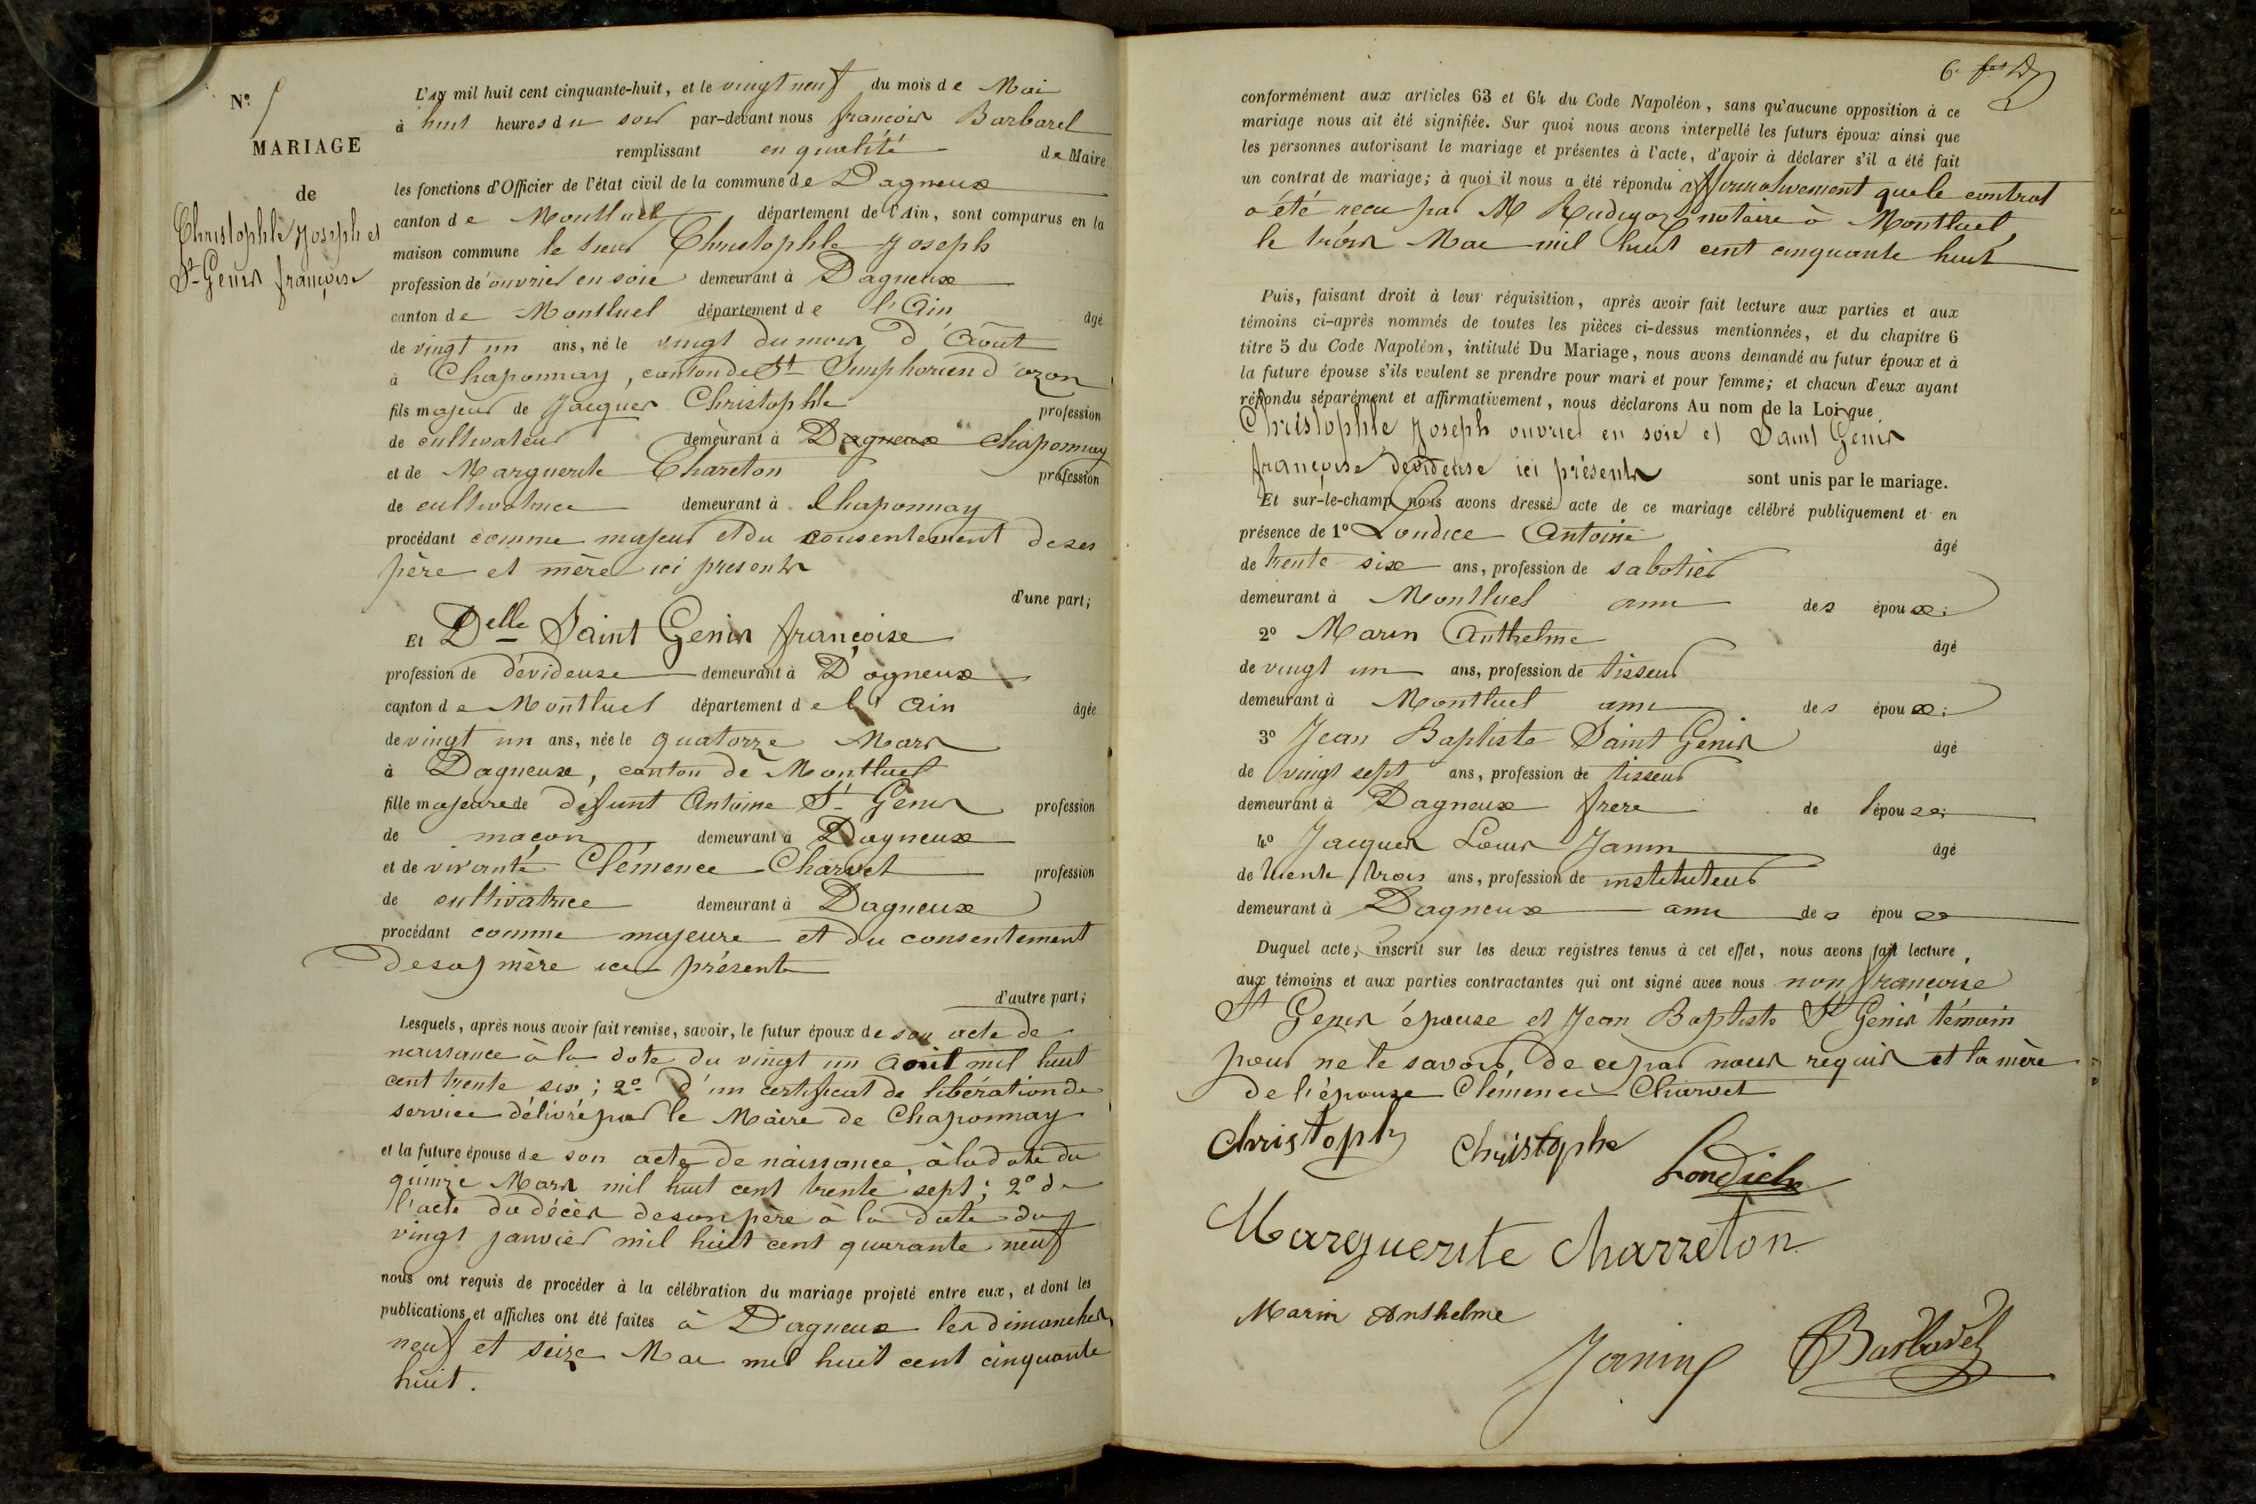 N°
MARIAGE
de
Christophle Joseph et
St Genis françoise
L'an mil huit cent cinquante-huit, et le vingt neuf du mois de Mai
à huit heures du soir par-devant nous françois Barbarel
remplissant en qualité de Maire
les fonctions d'Officier de l'état civil de la commune de Dagneux
canton de Montluel département de l'Ain, sont comparus en la
maison commune le sieur Christophle Joseph
profession de ouvrier en soie demeurant à Dagneux
canton de Montluel département de l'Ain âgé
de vingt un ans, né le vingt du mois d'Août
à Chaponnay, canton de St Simphorien d'ozon
fils majeur de Jacques Christophle profession
de cultivateur demeurant à Dagneux Chaponnay
et de Marguerite Chareton profession
de cultivatrice demeurant à Chaponnay
procédant comme majeur et du consentement de ses
père et mère ici présents
d'une part;
Et Delle Saint Genis françoise
profession de dévideuse demeurant à Dagneux
canton de Montluel département de l'Ain âgée
de vingt un ans, née le quatorze Mars
à Dagneux, canton de Montluel
fille majeure de défunt Antoine St Genis profession
de maçon demeurant à Dagneux
et de vivante Clémence Charvet profession
de cultivatrice demeurant à Dagneux
procédant comme majeure et du consentement
de sa mère ici présente
d'autre part;
Lesquels, après nous avoir fait remise, savoir, le futur époux de son acte de
naissance à la date du vingt un août mil huit
cent trente six; 2° d'un certificat de libération de
service délivré par le Maire de Chaponnay
et la future épouse de son acte de naissance, à la date du
quinze Mars mil huit cent trente sept; 2° de
l'acte du décès de son père à la date du
vingt janvier mil huit cent quarante neuf
nous ont requis de procéder à la célébration du mariage projeté entre eux, et dont les
publications et affiches ont été faites à Dagneux les dimanches
neuf et seize Mai mil huit cent cinquante
huit.
conformément aux articles 63 et 64 du Code Napoléon, sans qu'aucune opposition à ce
mariage nous ait été signifiée. Sur quoi nous avons interpellé les futurs époux ainsi que
les personnes autorisant le mariage et présentes à l'acte, d'avoir à déclarer s'il a été fait
un contrat de mariage; à quoi il nous a été répondu affirmativement que le contrat
a été reçu par M notaire à Montluel,
le trois Mai mil huit cent cinquante huit
Puis, faisant droit à leur réquisition, après avoir fait lecture aux parties et aux
témoins ci-après nommés de toutes les pièces ci-dessus mentionnées, et du chapitre 6
titre 5 du Code Napoléon, intitulé Du Mariage, nous avons demandé au futur époux et à
la future épouse s'ils veulent se prendre pour mari et pour femme; et chacun d'eux ayant
répondu séparément et affirmativement, nous déclarons Au nom de la Loi que
Christophle Joseph ouvrier en soie et Saint Genis
françoise dévideuse ici présents sont unis par le mariage.
Et sur-le-champ nous avons dressé acte de ce mariage célébré publiquement et en
présence de 1° Londice Antoine âgé
de trente six ans, profession de sabotier
demeurant à Montluel ami des époux;
2° Marin Anthelme âgé
de vingt un ans, profession de tisseur
demeurant à Montluel ami des époux;
3° Jean Baptiste Saint Genis âgé
de vingt sept ans, profession de tisseur
demeurant à Dagneux frere de l'épouse;
4° Jacques Louis Janin âgé
de trente trois ans, profession de instituteur
demeurant à Dagneux ami des époux
Duquel acte, inscrit sur les deux registres tenus à cet effet, nous avons fait lecture
aux témoins et aux parties contractantes qui ont signé avec nous non françoise
St Genis épouse et Jean Baptiste St Genis témoin
pour ne le savoir, de ce par nous requis et la mère
de l'épouse Clémence Charvet
Christoph Christophe Londiche
Marguerite Charreton
Marin Anthelme
Janin Barbarel